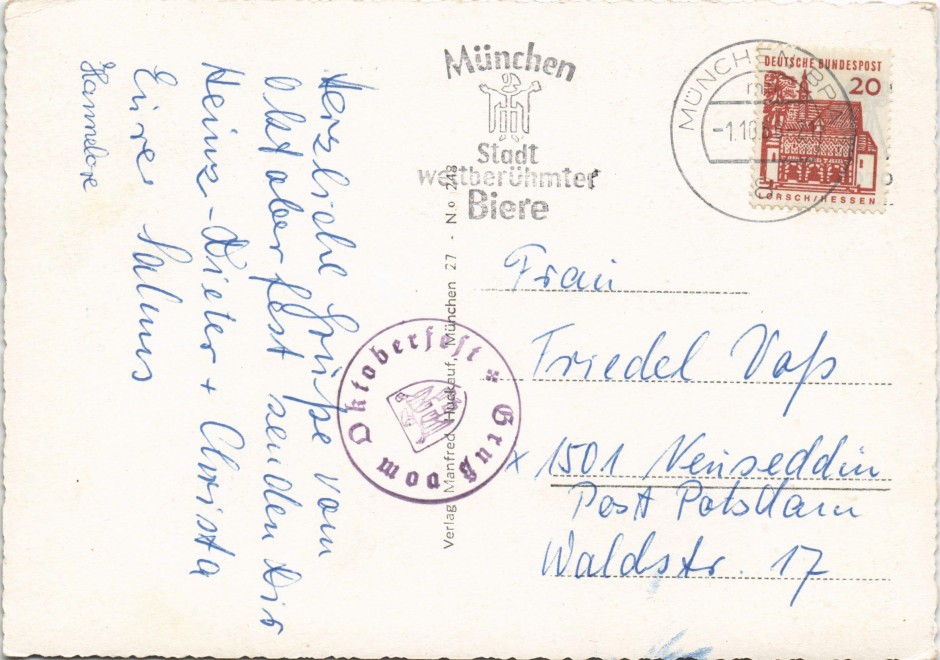 Herzliche Grüße vom
Oktoberfest senden Dir
Heinz-Dieter + Christa
Eure Salmus
Hannelore
München
Stadt
weltberühmter
Biere
MÜNCHEN
-1.10.
DEUTSCHE BUNDESPOST
20
LORSCH/HESSEN
Gruß vom Oktoberfest *
Verlag Manfred Huckauf, München 27 - No. 248
Frau
Friedel Voß
x 1501 Neuseddin
Post Potsdam
Waldstr. 17